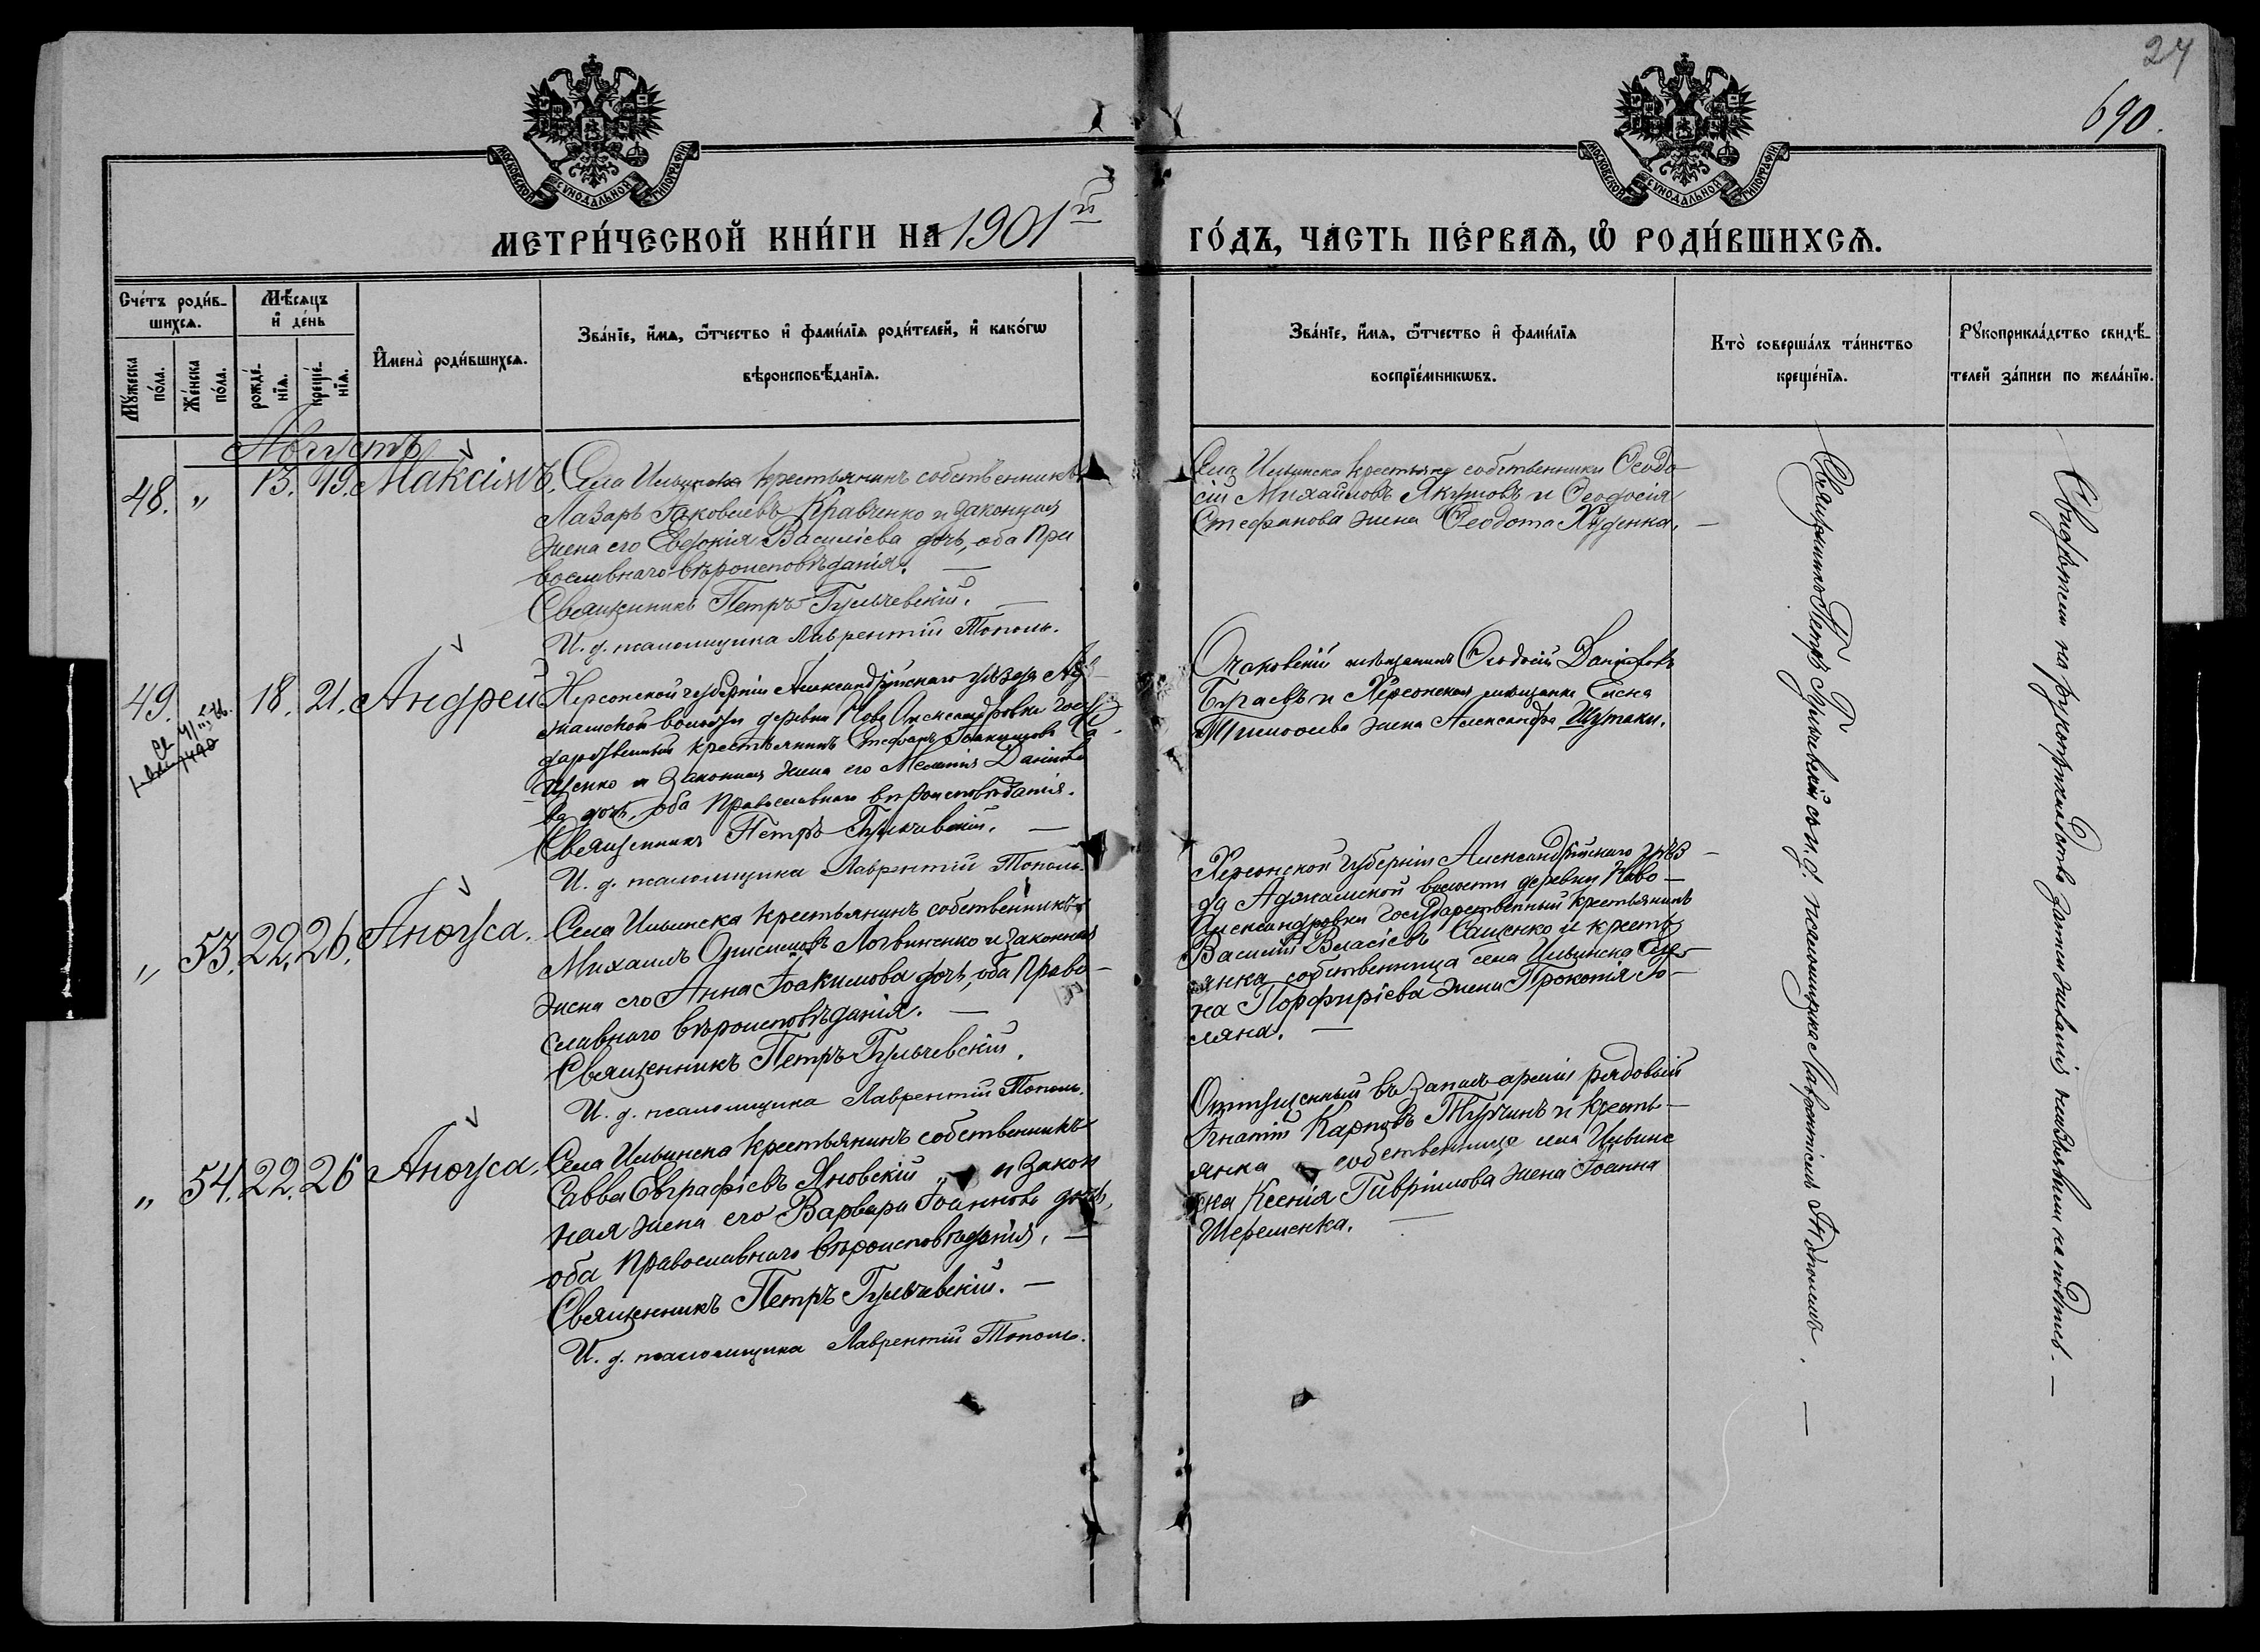 24
690.
МОСКОВСКОЙ СѴНОДАЛЬНОЙ ТИПОГРАФІИ
МОСКОВСКОЙ СѴНОДАЛЬНОЙ ТИПОГРАФІИ
МЕТРИ́ЧЕСКОЙ КНИ́ГИ НА 1901й
ГО́ДЪ, ЧА́СТЬ ПЕ́РВАѦ, Ѡ҆ РОДИ́ВШИХСѦ.
Сче́тъ роди́в-
шихсѧ.
Мꙋ́жеска по́ла.
Же́нска по́ла.
Мѣ́сяцъ
и҆ де́нь
рожде́-
нїѧ.
креще́-
нїѧ.
И҆мена̀ роди́вшихсѧ.
Зва́нїе, и҆́мѧ, ѻ҆́тчество и҆ фами́лїѧ роди́телей, и҆ како́гѡ
вѣроисповѣ́данїѧ.
Зва́нїе, и҆́мѧ, ѻ҆́тчество и҆ фами́лїѧ
воспрїе́мникѡвъ.
Кто̀ соверша́лъ та́инство
креще́нїѧ.
Рꙋкоприкла́дство свидѣ́-
телей за́писи по жела́нїю.
Августъ
48. " 13. 19. Максимъ.
Села Ильинска крестьянинъ собственникъ
Лазарь Іаковлевъ Кравченко и законная
жена его Евдокія Василіева дочь, оба Пра
вославнаго вѣроисповѣданія. —
Священникъ Петръ Гульчевскій. —
И. д. псаломщика Лаврентій Тополь.
Села Ильинска крестьяне собственники Ѳеодо
сій Михаиловъ Якумовъ и Ѳеодосія
Стефанова жена Ѳеодота Худенка. —
49. 18. 21. Андрей
Херсонской губерніи Александрійскаго уѣзда Ад-
жамской волости деревни Ново Александровки Госу
дарственный крестьянинъ Стефанъ Іоакимовъ Са-
щенко и законная жена его Меланія Даніило
ва дочь, оба Православнаго вѣроисповѣданія.
Священникъ Петръ Гульчевскій. —
И. д. псаломщика Лаврентій Тополь.
Очаковскій мѣщанинъ Ѳеодосій Даніиловъ
Бугаевъ и Херсонская мѣщанка Елена
Тимоѳеева жена Александра Шутаки.
" 53. 22. 26. Анѳуса.
Села Ильинска крестьянинъ собственникъ
Михаилъ Онисимовъ Логвиненко и законная
жена его Анна Іоакимова дочь, оба Право-
славнаго вѣроисповѣданія. —
Священникъ Петръ Гульчевскій.
И. д. псаломщика Лаврентій Тополь.
Херсонской губерніи Александрійскаго уѣз-
да Аджамской волости деревни Ново-
Александровки Государственный крестьянинъ
Василій Власіевъ Сащенко и кресть
янка собственница села Ильинска Еле-
на Порфиріева жена Прокопія Го-
ляна. —
" 54. 22. 26 Анѳуса.
Села Ильинска крестьянинъ собственникъ
Савва Евграфіевъ Яновскій и закон
ная жена его Варвара Іоаннова дочь,
оба Православнаго вѣроисповѣданія. —
Священникъ Петръ Гульчевскій. —
И. д. псаломщика Лаврентій Тополь.
Отпущенный въ запасъ арміи рядовый
Игнатій Карповъ Турчинъ и кресть-
янка собственница села Ильинс
ска Ксенія Гавріилова жена Іоанна
Шереметка. —
Священникъ Петръ Гульчевскій съ и. д. псаломщика Лаврентіемъ Тополемъ. —
Свидѣтели на рукоприкладство записи желанія не изъявили на подпись. —